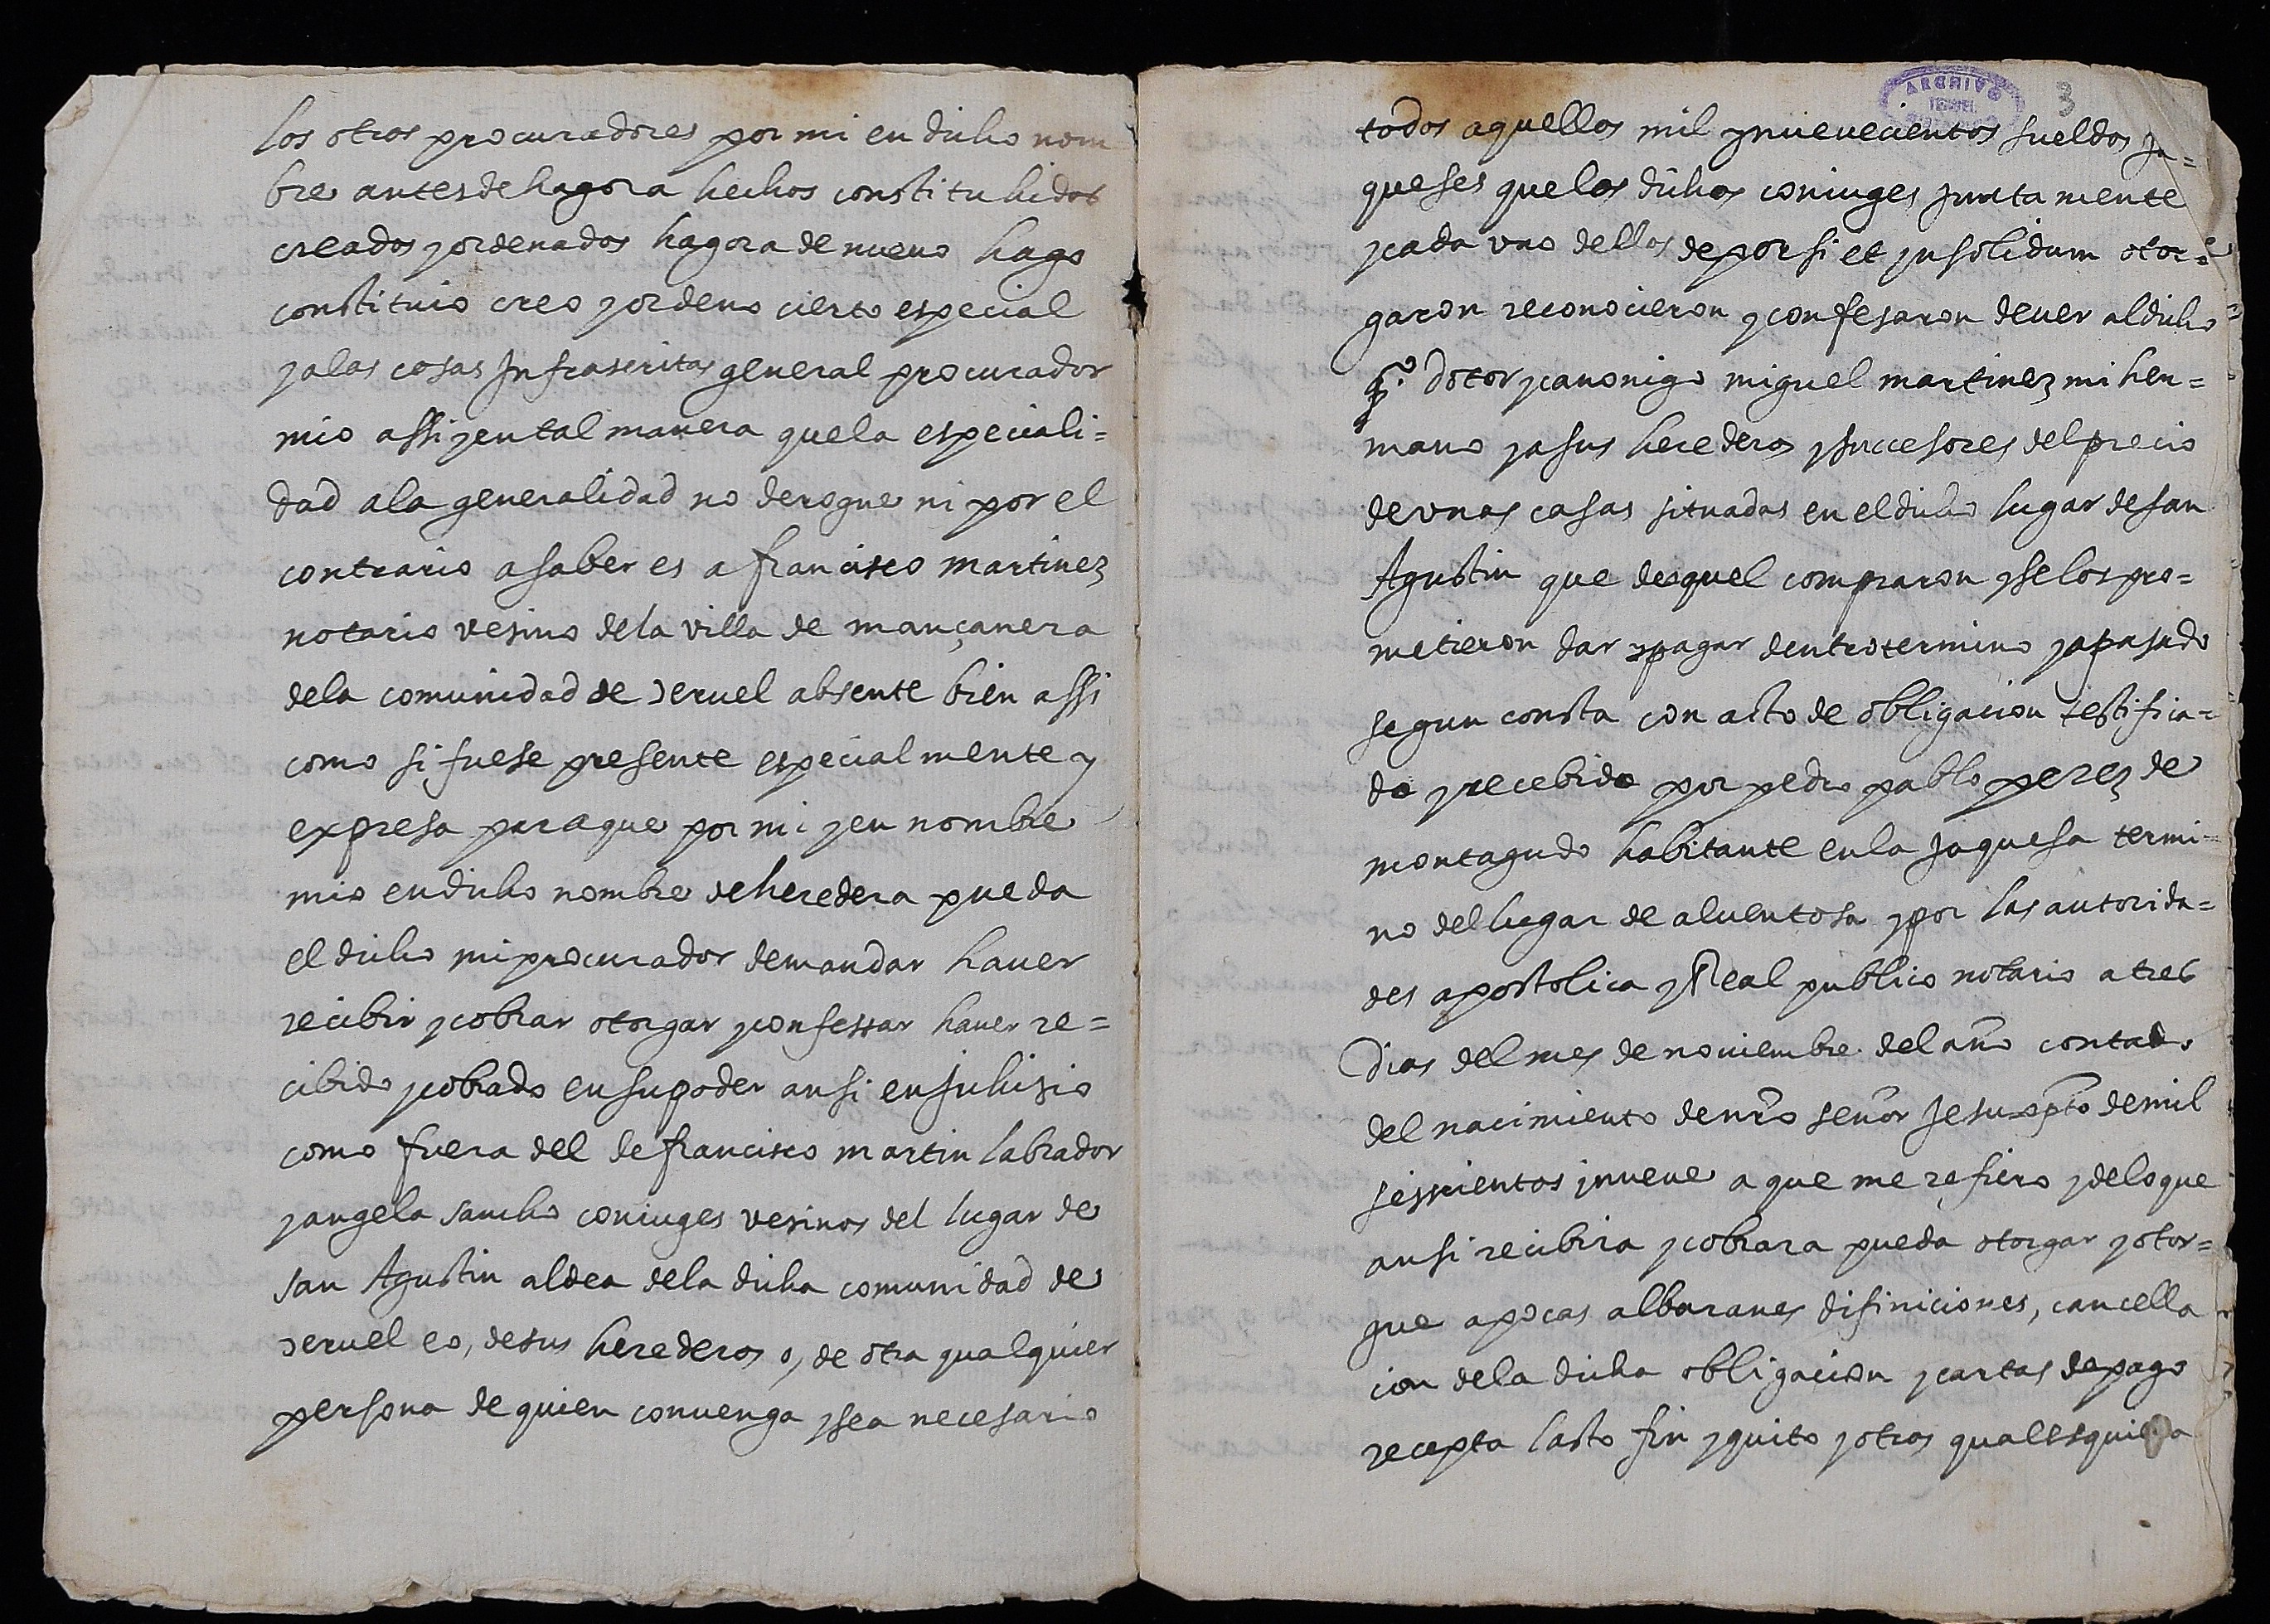 los otros procuradores por mi en dicho nom
bre antes de hagora hechos constituhidos
creados y ordenados hagora de nuevo hago
constituio creo y ordeno cierto especial
y a las cosas Infrascritas general procurador
mio assi y en tal manera que la especiali=
dad a la generalidad no derogue ni por el
contrario a saber es a francisco martinez
notario vesino de la villa de mançanera
de la comunidad de teruel absente bien assi
como si fuese presente especialmente y
expresa para que por mi y en nombre
mio en dicho nombre de heredera pueda
el dicho mi procurador demandar haver
recibir y cobrar otorgar y confessar haver re=
cibido y cobrado en su poder ansi en juhizio
como fuera del de francisco martin labrador
y angela sancho coniuges vesinos del lugar de
san Agustin aldea de la dicha comunidad de
teruel eo, de sus herederos o, de otra qualquier
persona de quien convenga y sea necesario
ARCHIVO
TERUEL
3
todos aquellos mil y nuevecientos sueldos Ja=
queses que los dichos coniuges juntamente
y cada uno dellos de por si et insolidum otor=
garon reconocieron y confesaron dever al dicho
q.º dotor y canonigo miguel martinez mi her=
mano y a sus herederos y successores del precio
de unas casas situadas en el dicho lugar de san
Agustin que de aquel compraron y se los pro=
metieron dar y pagar dentro termino ya pasado
segun consta con acto de obligacion testifica=
do y recebido por pedro pablo perez de
montagudo habitante en la Jaquesa termi=
no del lugar de alventosa y por las autorida=
des apostolica y Real publico notario a tres
Dias del mes de noviembre del año contado
del nacimiento de nro señor Jesu xpto de mil
seyscientos y nueve a que me refiero y de lo que
ansi recibira y cobrara pueda otorgar y otor=
gue apocas albaranes difiniciones, cancella
cion de la dicha obligacion y cartas de pago
recepta lasto fin y quito y otras qualesquiera